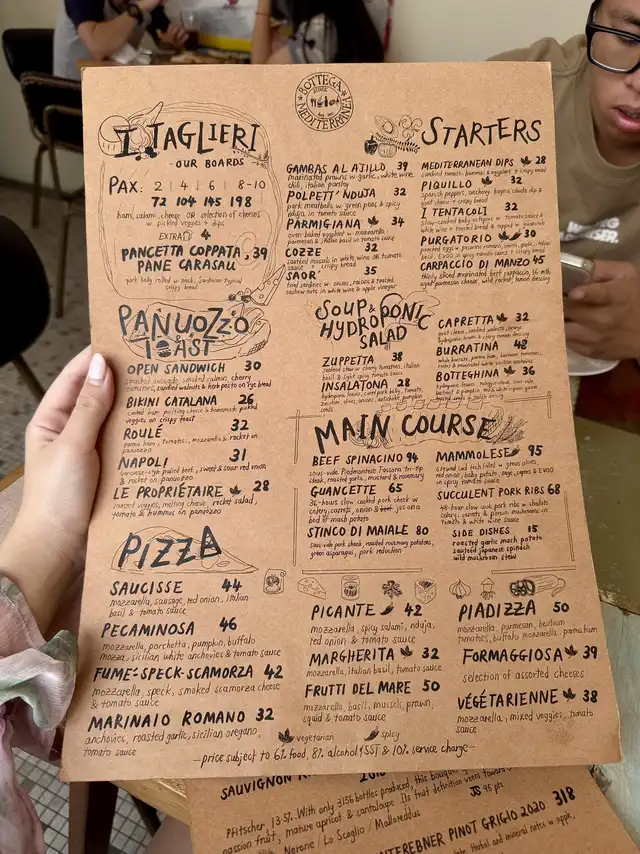 BOTTEGA
MEDITERRANEA
I TAGLIERI
- OUR BOARDS -
PAX: 2 | 4 | 6 | 8-10
72 104 145 198
ham, salami, cheese OR selection of cheeses
w pickled veggies + dips
EXTRA 4
PANCETTA COPPATA, 39
PANE CARASAU
pork belly rolled w neck, Sardinian typical
crispy bread
PANUOZZO
& TOAST
OPEN SANDWICH 30
smashed avocado, smoked salmon, cherry
tomatoes, candied walnuts & hot pesto on rye bread
BIKINI CATALANA 26
cooked ham, melting cheese & homemade pickled
veggies on crispy toast
ROULÉ 32
parma ham, tomatoes, mozzarella & rocket on
panuozzo
NAPOLI 31
-style pulled beef, sweet & sour red onion
& rocket on panuozzo
LE PROPRIÉTAIRE 28
roasted veggies, melting cheese, rocket salad,
tomato & hummus on panuozzo
PIZZA
SAUCISSE 44
mozzarella, sausage, red onion, italian
basil & tomato sauce
PECAMINOSA 46
mozzarella, porchetta, pumpkin, buffalo
mozza, sicilian white anchovies & tomato sauce
FUMÉ-SPECK-SCAMORZA 42
mozzarella, speck, smoked scamorza cheese
& tomato sauce
MARINAIO ROMANO 32
anchovies, roasted garlic, sicilian oregano,
tomato sauce
STARTERS
GAMBAS AL AJILLO 39
marinated prawns w garlic, white wine,
chili, italian parsley
POLPETT' NDUJA 32
pork meatballs w green peas & spicy
nduja in tomato sauce
PARMIGIANA 34
oven-baked eggplant w mozzarella,
parmesan & italian basil in tomato sauce
COZZE 32
sautéed mussels in white wine OR tomato
sauce + crispy bread
SAOR 35
fried sardines w onions, raisins & toasted
cashew nuts in white wine & apple vinegar
MEDITERRANEAN DIPS 28
sundried tomato, hummus & eggplant + crispy bread
PIQUILLO 32
spanish peppers, anchovy, bagna cauda dip &
goat cheese + crispy bread
I TENTACOLI 32
slow-cooked baby octopus w tomato sauce &
white wine + toasted bread
PURGATORIO 30
poached eggs w piquillo, onion, garlic, italian
basil, EVOO in spicy tomato sauce + crispy bread
CARPACCIO DI MANZO 45
thinly sliced marinated beef carpaccio, 36 mth
aged parmesan cheese, wild rocket, lemon dressing
SOUP &
HYDROPONIC
SALAD
ZUPPETTA 38
seafood stew w cherry tomatoes, italian
basil & light spicy tomato sauce
INSALATONA 28
hydroponic greens, carrots, baby tomato,
CAPRETTA 32
goat cheese, candied walnuts,
hydroponic greens & honey mustard dressing
BURRATINA 48
BOTTEGHINA 36
MAIN COURSE
BEEF SPINACINO 94
sous-vide Piedmontese Fassona tri-tip
steak, roasted garlic, mustard & rosemary
GUANCETTE 65
36-hours slow cooked pork cheek w
celery, carrots, onion & jus on a
bed of mash potato
STINCO DI MAIALE 80
sous-vide pork shank, roasted rosemary potatoes,
green asparagus, pork reduction
MAMMOLESE 95
stewed cod fish fillet w green olives,
red onion, baby potato, sage, capers & EVOO
in spicy tomato sauce
SUCCULENT PORK RIBS 68
48-hour slow cook pork ribs w shallots
celery, carrots & porcini mushrooms in
tomato & white wine sauce
SIDE DISHES 15
roasted garlic mash potato
sautéed japanese spinach
wild mushroom stew
PICANTE 42
mozzarella, spicy salami, nduja,
red onion & tomato sauce
MARGHERITA 32
mozzarella, italian basil, tomato sauce
FRUTTI DEL MARE 50
mozzarella, basil, mussels, prawn,
squid & tomato sauce
PIADIZZA 50
mozzarella, parmesan, heirloom
tomatoes, buffalo mozzarella, parma ham
FORMAGGIOSA 39
selection of assorted cheeses
VÉGÉTARIENNE 38
mozzarella, mixed veggies, tomato
sauce
vegetarian spicy
-price subject to 6% food, 8% alcohol SST & 10% service charge-
SAUVIGNON
Pfitscher, 13.5%. With only 3156 bottles produced, this bouquet
passion fruit, mature apricot & cantaloupe. Its fruit definition veers toward
JS 95 pts
Nerone / Lo Scoglio / Malloreddus
PINOT GRIGIO 2020 318